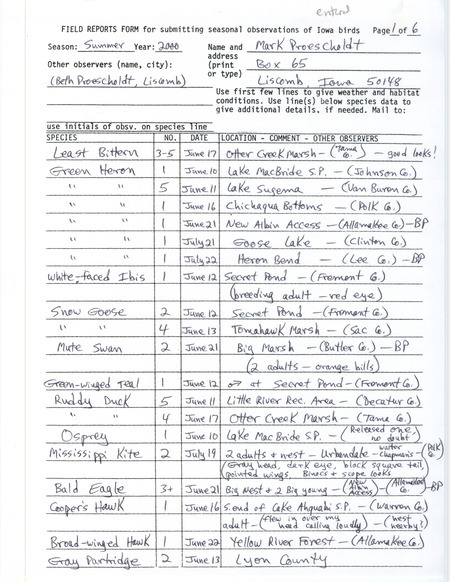 entered
FIELD REPORTS FORM for submitting seasonal observations of Iowa birds Page 1 of 6
Season: Summer Year: 2000 Name and Mark Proescholdt
Other observers (name, city): address
(print Box 65
(Beth Proescholdt, Liscomb) or type) Liscomb, Iowa 50148
Use first few lines to give weather and habitat
conditions. Use line(s) below species data to
give additional details, if needed. Mail to:
use initials of obsv. on species line
SPECIES NO. DATE LOCATION - COMMENT - OTHER OBSERVERS
Least Bittern 3-5 June 17 Otter Creek Marsh - (Tama Co.) - good looks!
Green Heron 1 June 10 Lake MacBride S.P. - (Johnson Co.)
" " 5 June 11 Lake Sugema - (Van Buren Co.)
" " 1 June 16 Chichaqua Bottoms - (Polk Co.)
" " 1 June 21 New Albin Access - (Allamakee Co.) - BP
" " 1 July 21 Goose Lake - (Clinton Co.)
" " 1 July 22 Heron Bend - (Lee Co.) - BP
White-faced Ibis 1 June 12 Secret Pond - (Fremont Co.)
(breeding adult - red eye)
Snow Goose 2 June 12 Secret Pond - (Fremont Co.)
" " 4 June 13 Tomahawk Marsh - (Sac Co.)
Mute Swan 2 June 21 Big Marsh - (Butler Co.) - BP
(2 adults - orange bills)
Green-winged Teal 1 June 12 ♂ at Secret Pond - (Fremont Co.)
Ruddy Duck 5 June 11 Little River Rec. Area - (Decatur Co.)
" " 4 June 17 Otter Creek Marsh - (Tama Co.)
Osprey 1 June 10 Lake MacBride S.P. - (Released one, no doubt)
Mississippi Kite 2 July 19 2 adults + nest - Urbandale - (Polk Co.)
(Gray head, dark eye, black square tail,
pointed wings. Binocs + scope looks
Bald Eagle 3+ June 21 Big Nest + 2 Big young - (New Albin Access) - (Allamakee Co.) - BP
Cooper's Hawk 1 June 16 S. end of Lake Ahquabi S.P. - (Warren Co.)
adult - (flew in over my head calling loudly) - (nest nearby?)
Broad-winged Hawk 1 June 22 Yellow River Forest - (Allamakee Co.)
Gray Partridge 2 June 13 Lyon County